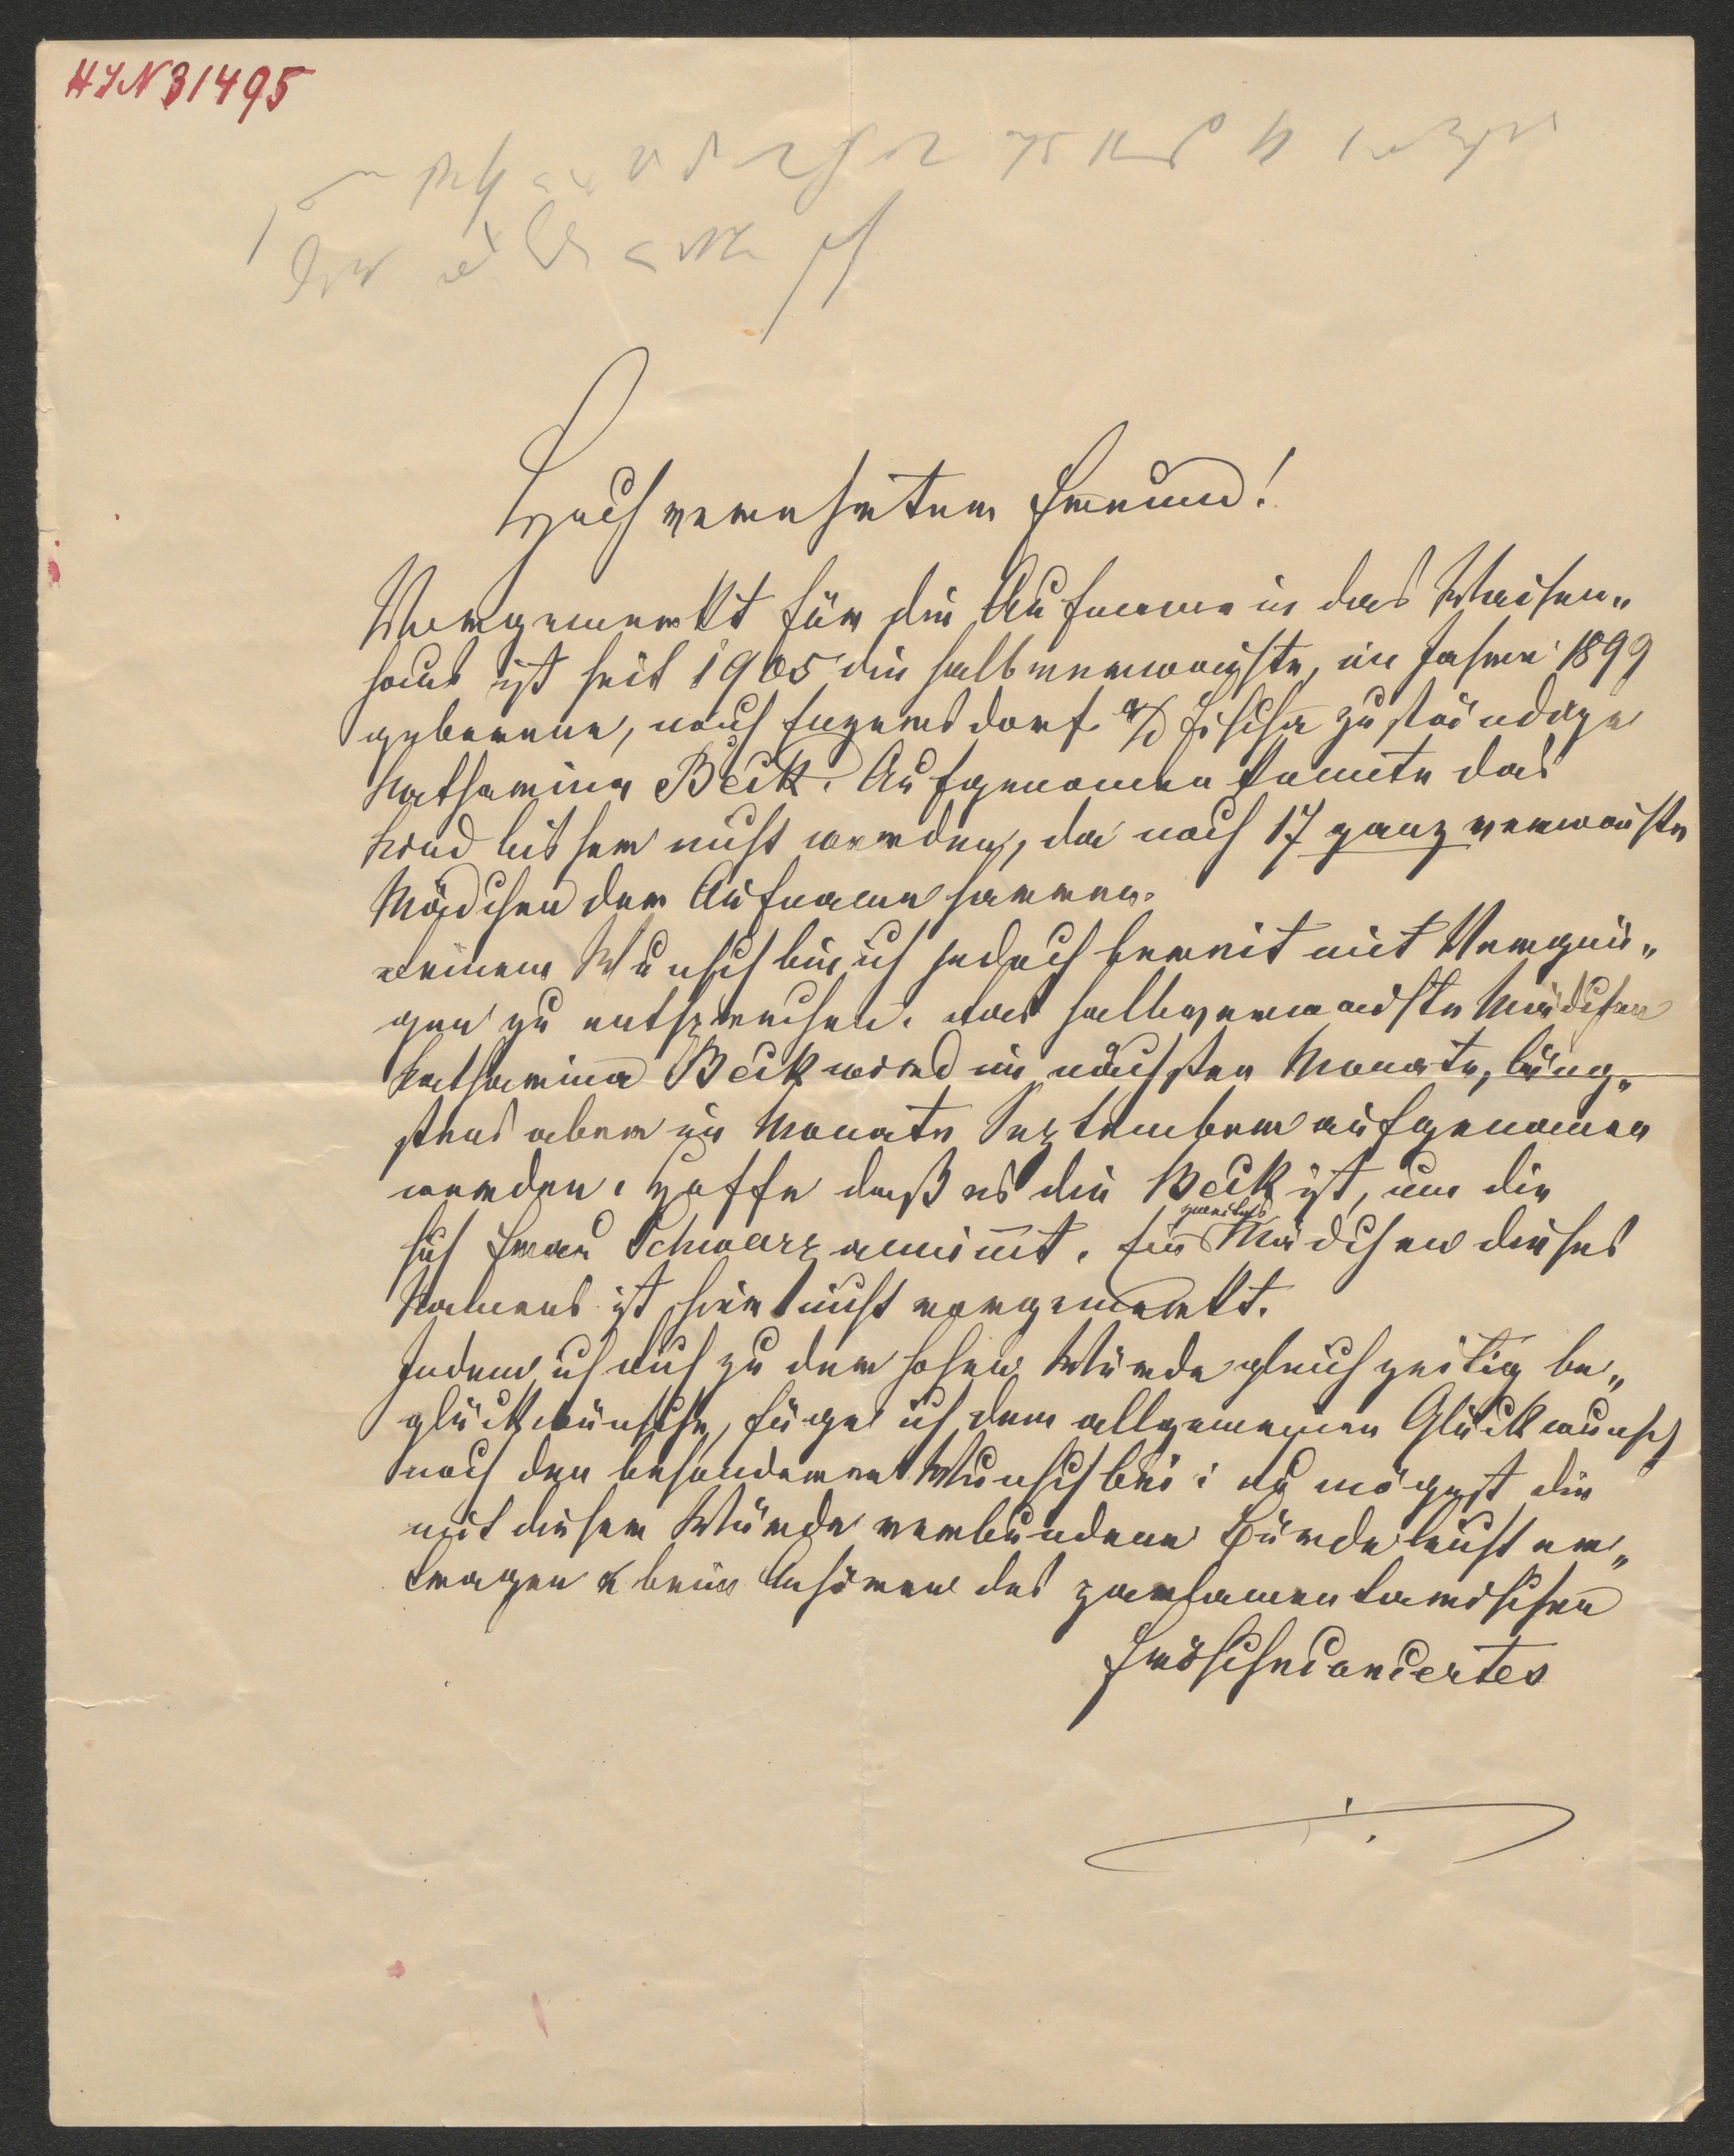 HIN 31495
Hochverehrter Freund!
Vorgemerkt für die Aufname in das Waisen„
haus ist seit 1905 die halbverwaiste, im Jahre 1899
geborene, nach Enzersdorf a/d Fischa zuständige
Katharina Beck. Aufgenomen konnte das
Kind bisher nicht werden, da noch 17 ganz verwaiste
Mädchen der Aufname harren.
Deinem Wunsch bin ich jedoch bereit mit Vergnü„
gen zu entsprechen. Das halbverwaiste Mädchen
Katharina Beck wird im nächsten Monate, läng„
stens aber im Monate September aufgenomen
werden. Hoffe daß es die Beck ist, um die
sich Frau Schwarz annimt. Ein zweites Mädchen dieses
Namens ist hier nicht vorgemerkt.
Indem ich Dich zu der hohen Würde gleichzeitig be„
glückwünsche, füge ich dem allgemeinen Glückwunsch
noch den besonderen Wunsch bei: Du mögest die
mit dieser Würde verbundene Bürde leicht er„
tragen & beim Anhören des parlamentarischen
Fröschconcertes